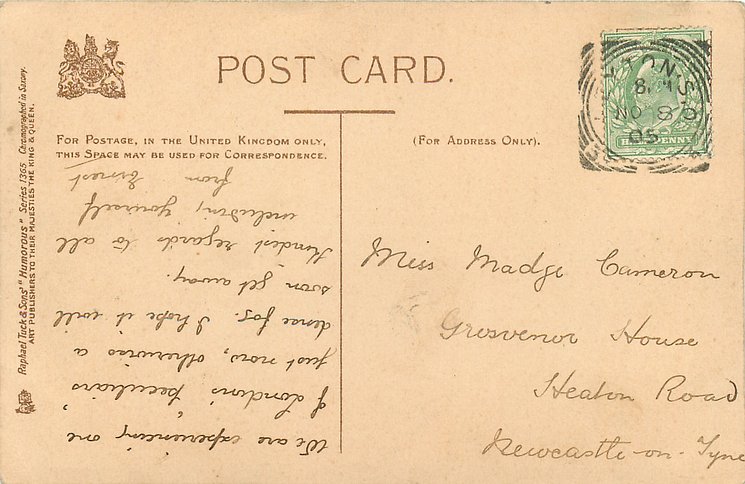 POST CARD.
FOR POSTAGE, IN THE UNITED KINGDOM ONLY,
THIS SPACE MAY BE USED FOR CORRESPONDENCE.
(FOR ADDRESS ONLY).
We are experiencing one
of London's "peculiars"
just now, otherwise a
dense fog. I hope it will
soon get away.
Kindest regards to all
including yourself
from Ernest
Miss Madge Cameron
Grosvenor House
Heaton Road
Newcastle-on-Tyne
Raphael Tuck & Sons' "Humorous" Series 1365 Chromographed in Saxony.
ART PUBLISHERS TO THEIR MAJESTIES THE KING & QUEEN.
NO 8
05